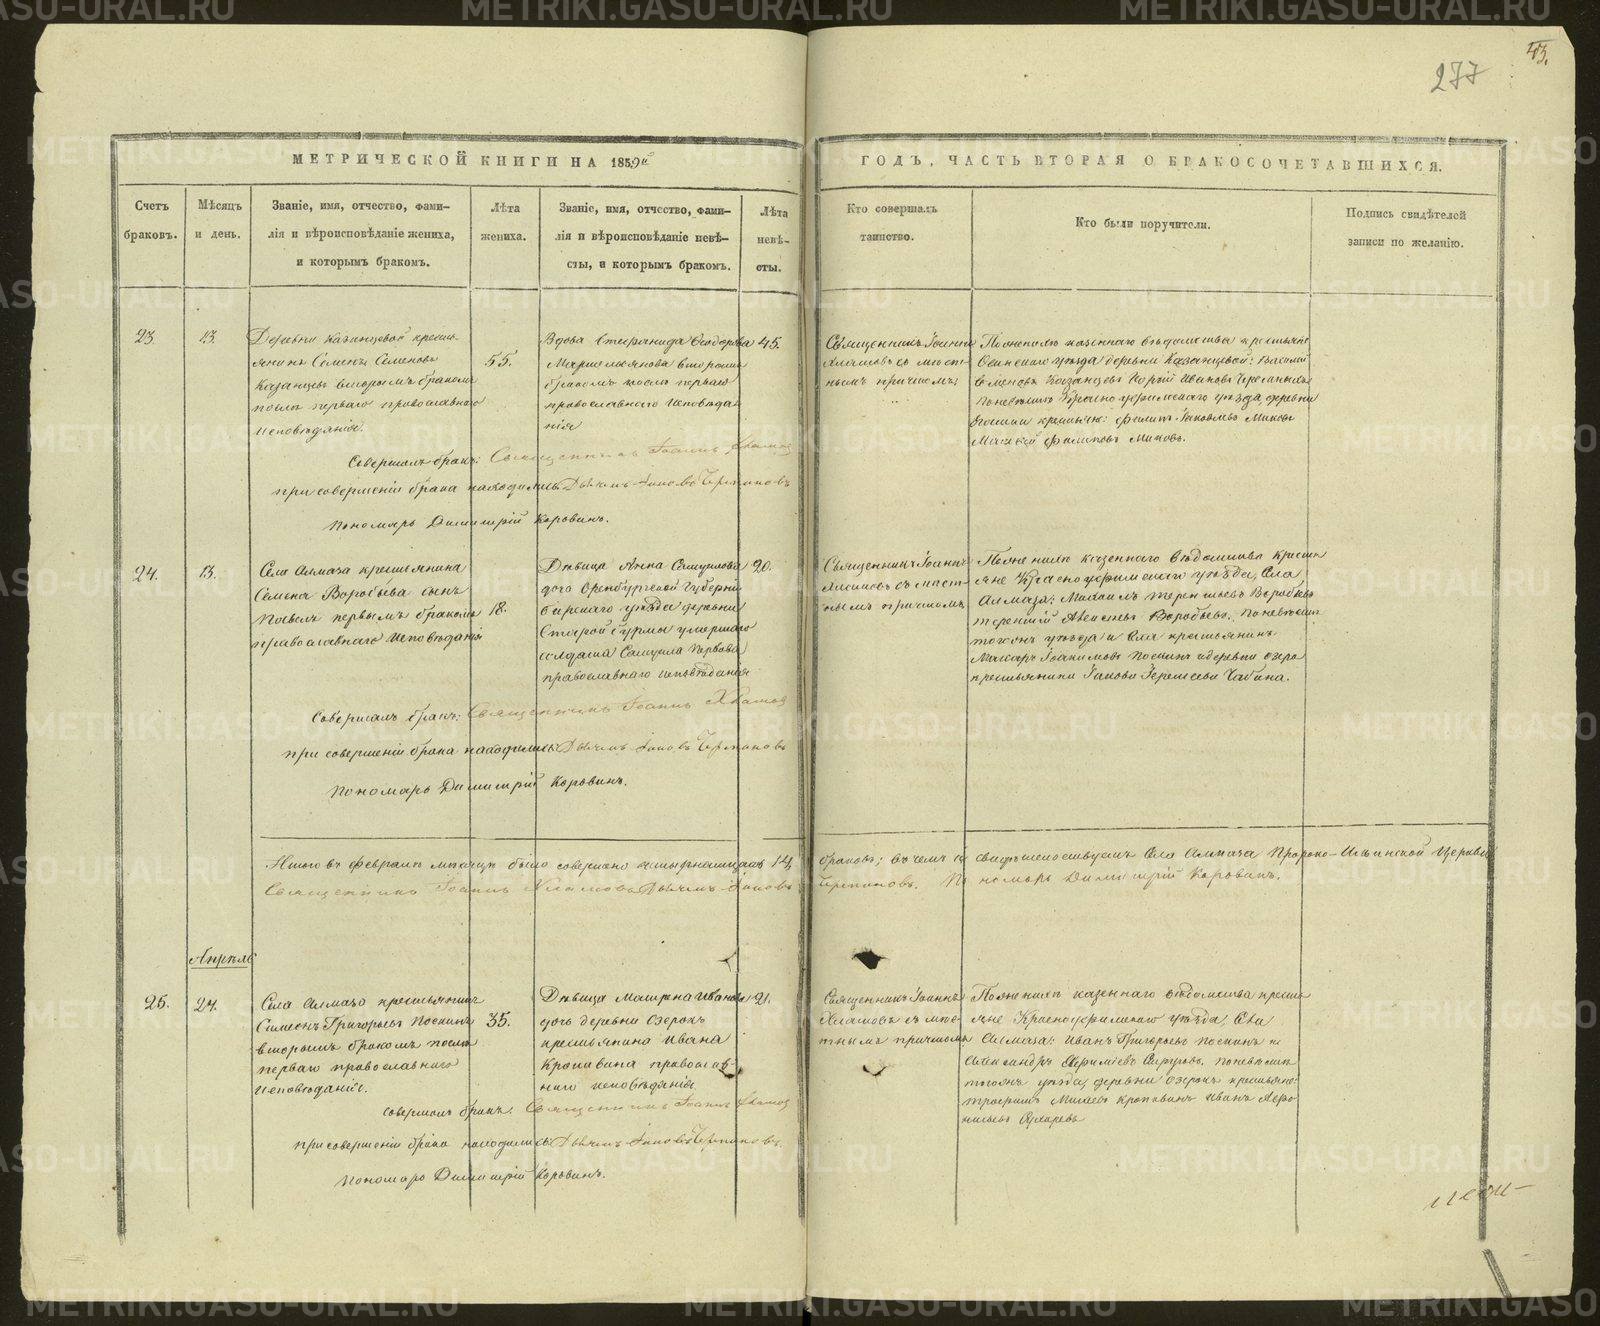 43.
277
МЕТРИЧЕСКОЙ КНИГИ НА 1859й
ГОДЪ, ЧАСТЬ ВТОРАЯ О БРАКОСОЧЕТАВШИХСЯ.
Счетъ браковъ.
Мѣсяцъ и день.
Званіе, имя, отчество, фами-
лія и вѣроисповѣданіе жениха,
и которымъ бракомъ.
Лѣта жениха.
Званіе, имя, отчество, фами-
лія и вѣроисповѣданіе невѣ-
сты, и которымъ бракомъ.
Лѣта невѣ-
сты.
Кто совершалъ
таинство.
Кто были поручители.
Подпись свидѣтелей
записи по желанію.
23.
13.
Деревни Казанцевой кресть
янинъ Семенъ Семеновъ
Казанцевъ вторымъ бракомъ
послѣ перваго православнаго
исповѣданія.
55.
Вдова Стефанида Ѳеодорова
вторымъ
бракомъ послѣ перваго
православнаго исповѣда
нія
45.
Священникъ Іоаннъ
Хламовъ съ мѣст
нымъ причтомъ
По женихѣ казеннаго вѣдомства крестьяне
уѣзда деревни Казанцевой: Василій
Семеновъ Казанцевъ Ивановъ
По невѣстѣ Красноуфимскаго уѣзда, деревни
крестьяне: Филипъ Яковлевъ
Филиповъ
Совершалъ бракъ: Священникъ Іоаннъ Хламовъ
при совершеніи брака находились Дьячекъ Іаковъ Черепановъ
Пономарь Димитрій Коровинъ.
24.
13.
Села Алмаза крестьянина
Семена Воробьева сынъ
первымъ бракомъ
православнаго исповѣданія
18.
Дѣвица Анна Самуилова
дочь Оренбургской Губерніи
Бирскаго уѣзда деревни
Старой умершаго
солдата Самуила
православнаго исповѣданія
20.
Священникъ Іоаннъ
Хламовъ съ мѣст
нымъ причтомъ
По женихѣ казеннаго вѣдомства кресть
яне Красноуфимскаго уѣзда, Села
Алмаза: Михаилъ Терентьевъ Воробьевъ
Терентій Воробьевъ. По невѣстѣ
тогожъ уѣзда и села крестьянинъ
Макаръ Іоакимовъ и деревни Озеро
крестьянинъ Іаковъ
Совершалъ бракъ: Священникъ Іоаннъ Хламовъ
при совершеніи брака находились Дьячекъ Іаковъ Черепановъ
Пономарь Димитрій Коровинъ.
Итого въ февралѣ мѣсяцѣ было совершено четырнадцать 14
браковъ; въ чемъ и свидѣтельствуемъ Села Алмаза Пророко-Ильинской Церкви
Священникъ Іоаннъ Хламовъ Дьячекъ Іаковъ
Черепановъ. Пономарь Димитрій Коровинъ.
Апрѣль
25.
24.
Села Алмаза крестьянинъ
Симеонъ Григорьевъ
вторымъ бракомъ послѣ
перваго православнаго
исповѣданія.
35.
Дѣвица Матрена Иванова
дочь деревни Озерокъ
крестьянина Ивана
Кропивина православ-
наго исповѣданія
21.
Священникъ Іоаннъ
Хламовъ съ мѣс
тнымъ причтомъ
По женихѣ казеннаго вѣдомства кресть
яне Красноуфимскаго уѣзда, Села
Алмаза: Иванъ Григорьевъ и
Александръ По невѣстѣ
тогожъ уѣзда, деревни Озерокъ крестьяне:
Кропивинъ Иванъ
совершалъ бракъ: Священникъ Іоаннъ Хламовъ
при совершеніи брака находились: Дьячекъ Іаковъ Черепановъ
Пономарь Димитрій Коровинъ.
METRIKI.GASO-URAL.RU